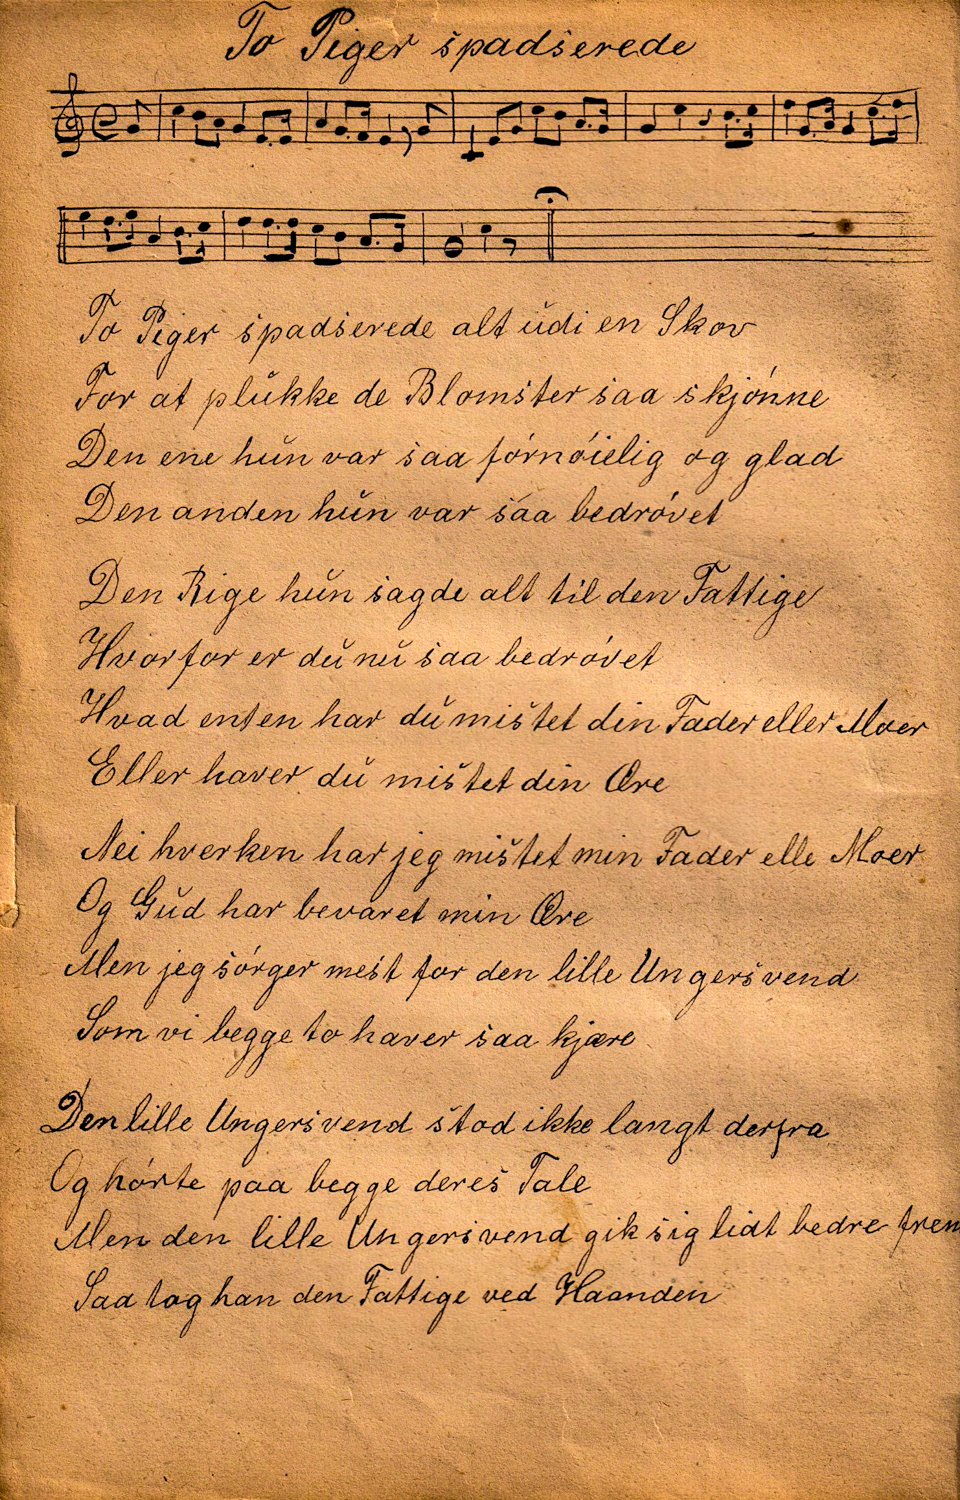 To Piger spadserede
To Piger spadserede alt udi en Skov
For at plukke de Blomster saa skjónne
Den ene hun var saa fórnóielig og glad
Den anden hun var saa bedróvet
Den Rige hun sagde alt til den Fattige
Hvorfor er du nu saa bedróvet
Hvad enten har du mistet din Fader eller Moer
Eller haver du mistet din Ære
Nei hverken har jeg mistet min Fader elle Moer
Og Gud har bevaret min Ære
Men jeg sórger mest for den lille Ungersvend
Som vi begge to haver saa kjære
Den lille Ungersvend stod ikke langt derfra
Og hórte paa begge deres Tale
Men den lille Ungersvend gik sig lidt bedre frem
Saa tog han den Fattige ved Haanden